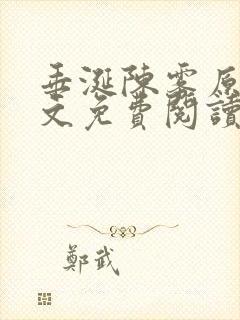 垂涎陳雾原
文免費閱讀
鄭武